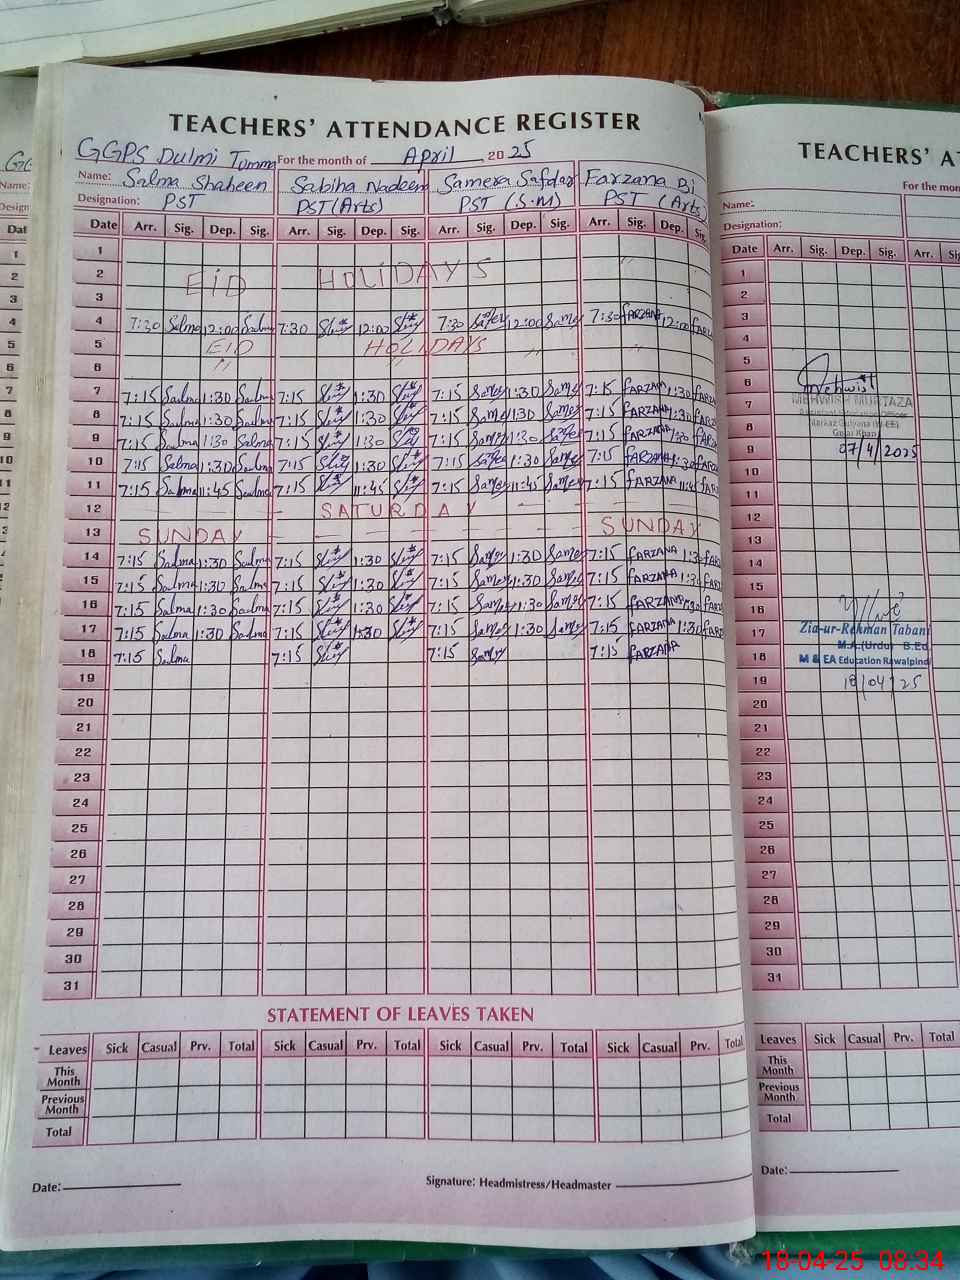 TEACHERS' ATTENDANCE REGISTER
GGPS Dulmi Tumma For the month of April 2025
Name: Salma Shaheen Sabiha Nadeem Samera Safdar Farzana Bi
Designation: PST PST (Arts) PST (S.M) PST (Arts)
Date Arr. Sig. Dep. Sig. Arr. Sig. Dep. Sig. Arr. Sig. Dep. Sig. Arr. Sig. Dep. Sig.
1
2 EID HOLIDAYS "
3
4 7:30 Salma 12:00 Salma 7:30 12:00 7:30 Samera 12:00 Samera 7:30 FARZANA 12:00 FARZ
5 EID HOLIDAYS
6 " " " "
7 7:15 Salma 1:30 Salma 7:15 1:30 7:15 Samera 1:30 Samera 7:15 FARZANA 1:30 FARZ
8 7:15 Salma 1:30 Salma 7:15 1:30 7:15 Samera 1:30 Samera 7:15 FARZANA 1:30 FARZ
9 7:15 Salma 1:30 Salma 7:15 1:30 7:15 Samera 1:30 Samera 7:15 FARZANA 1:30 FARZ
10 7:15 Salma 1:30 Salma 7:15 1:30 7:15 Samera 1:30 Samera 7:15 FARZANA 1:30 FARZ
11 7:15 Salma 11:45 Salma 7:15 11:45 7:15 Samera 11:45 Samera 7:15 FARZANA 11:45 FARZ
12 SATURDAY
13 SUNDAY SUNDAY
14 7:15 Salma 1:30 Salma 7:15 1:30 7:15 Samera 1:30 Samera 7:15 FARZANA 1:30 FARZ
15 7:15 Salma 1:30 Salma 7:15 1:30 7:15 Samera 1:30 Samera 7:15 FARZANA 1:30 FARZ
16 7:15 Salma 1:30 Salma 7:15 1:30 7:15 Samera 1:30 Samera 7:15 FARZANA 1:30 FARZ
17 7:15 Salma 1:30 Salma 7:15 1:30 7:15 Samera 1:30 Samera 7:15 FARZANA 1:30 FARZ
18 7:15 Salma 7:15 7:15 Samera 7:15 FARZANA
19
20
21
22
23
24
25
26
27
28
29
30
31
STATEMENT OF LEAVES TAKEN
Leaves Sick Casual Prv. Total Sick Casual Prv. Total Sick Casual Prv. Total Sick Casual Prv. Total
This Month
Previous Month
Total
Date: Signature: Headmistress/Headmaster
TEACHERS' AT
For the mon
Name:
Designation:
Date Arr. Sig. Dep. Sig. Arr. Sig
1
2
3
4
5
6
Mehwish
7 MEHWISH MURTAZA
8
Gujar Khan
9 07/4/2025
10
11
12
13
14
15
16
17 Zia-ur-Rehman Tabani
M.A.(Urdu) B.Ed.
18 M & EA Education Rawalpindi
19 18/04/25
20
21
22
23
24
25
26
27
28
29
30
31
Leaves Sick Casual Prv. Total Sick
This Month
Previous Month
Total
Date:
18-04-25 08:34